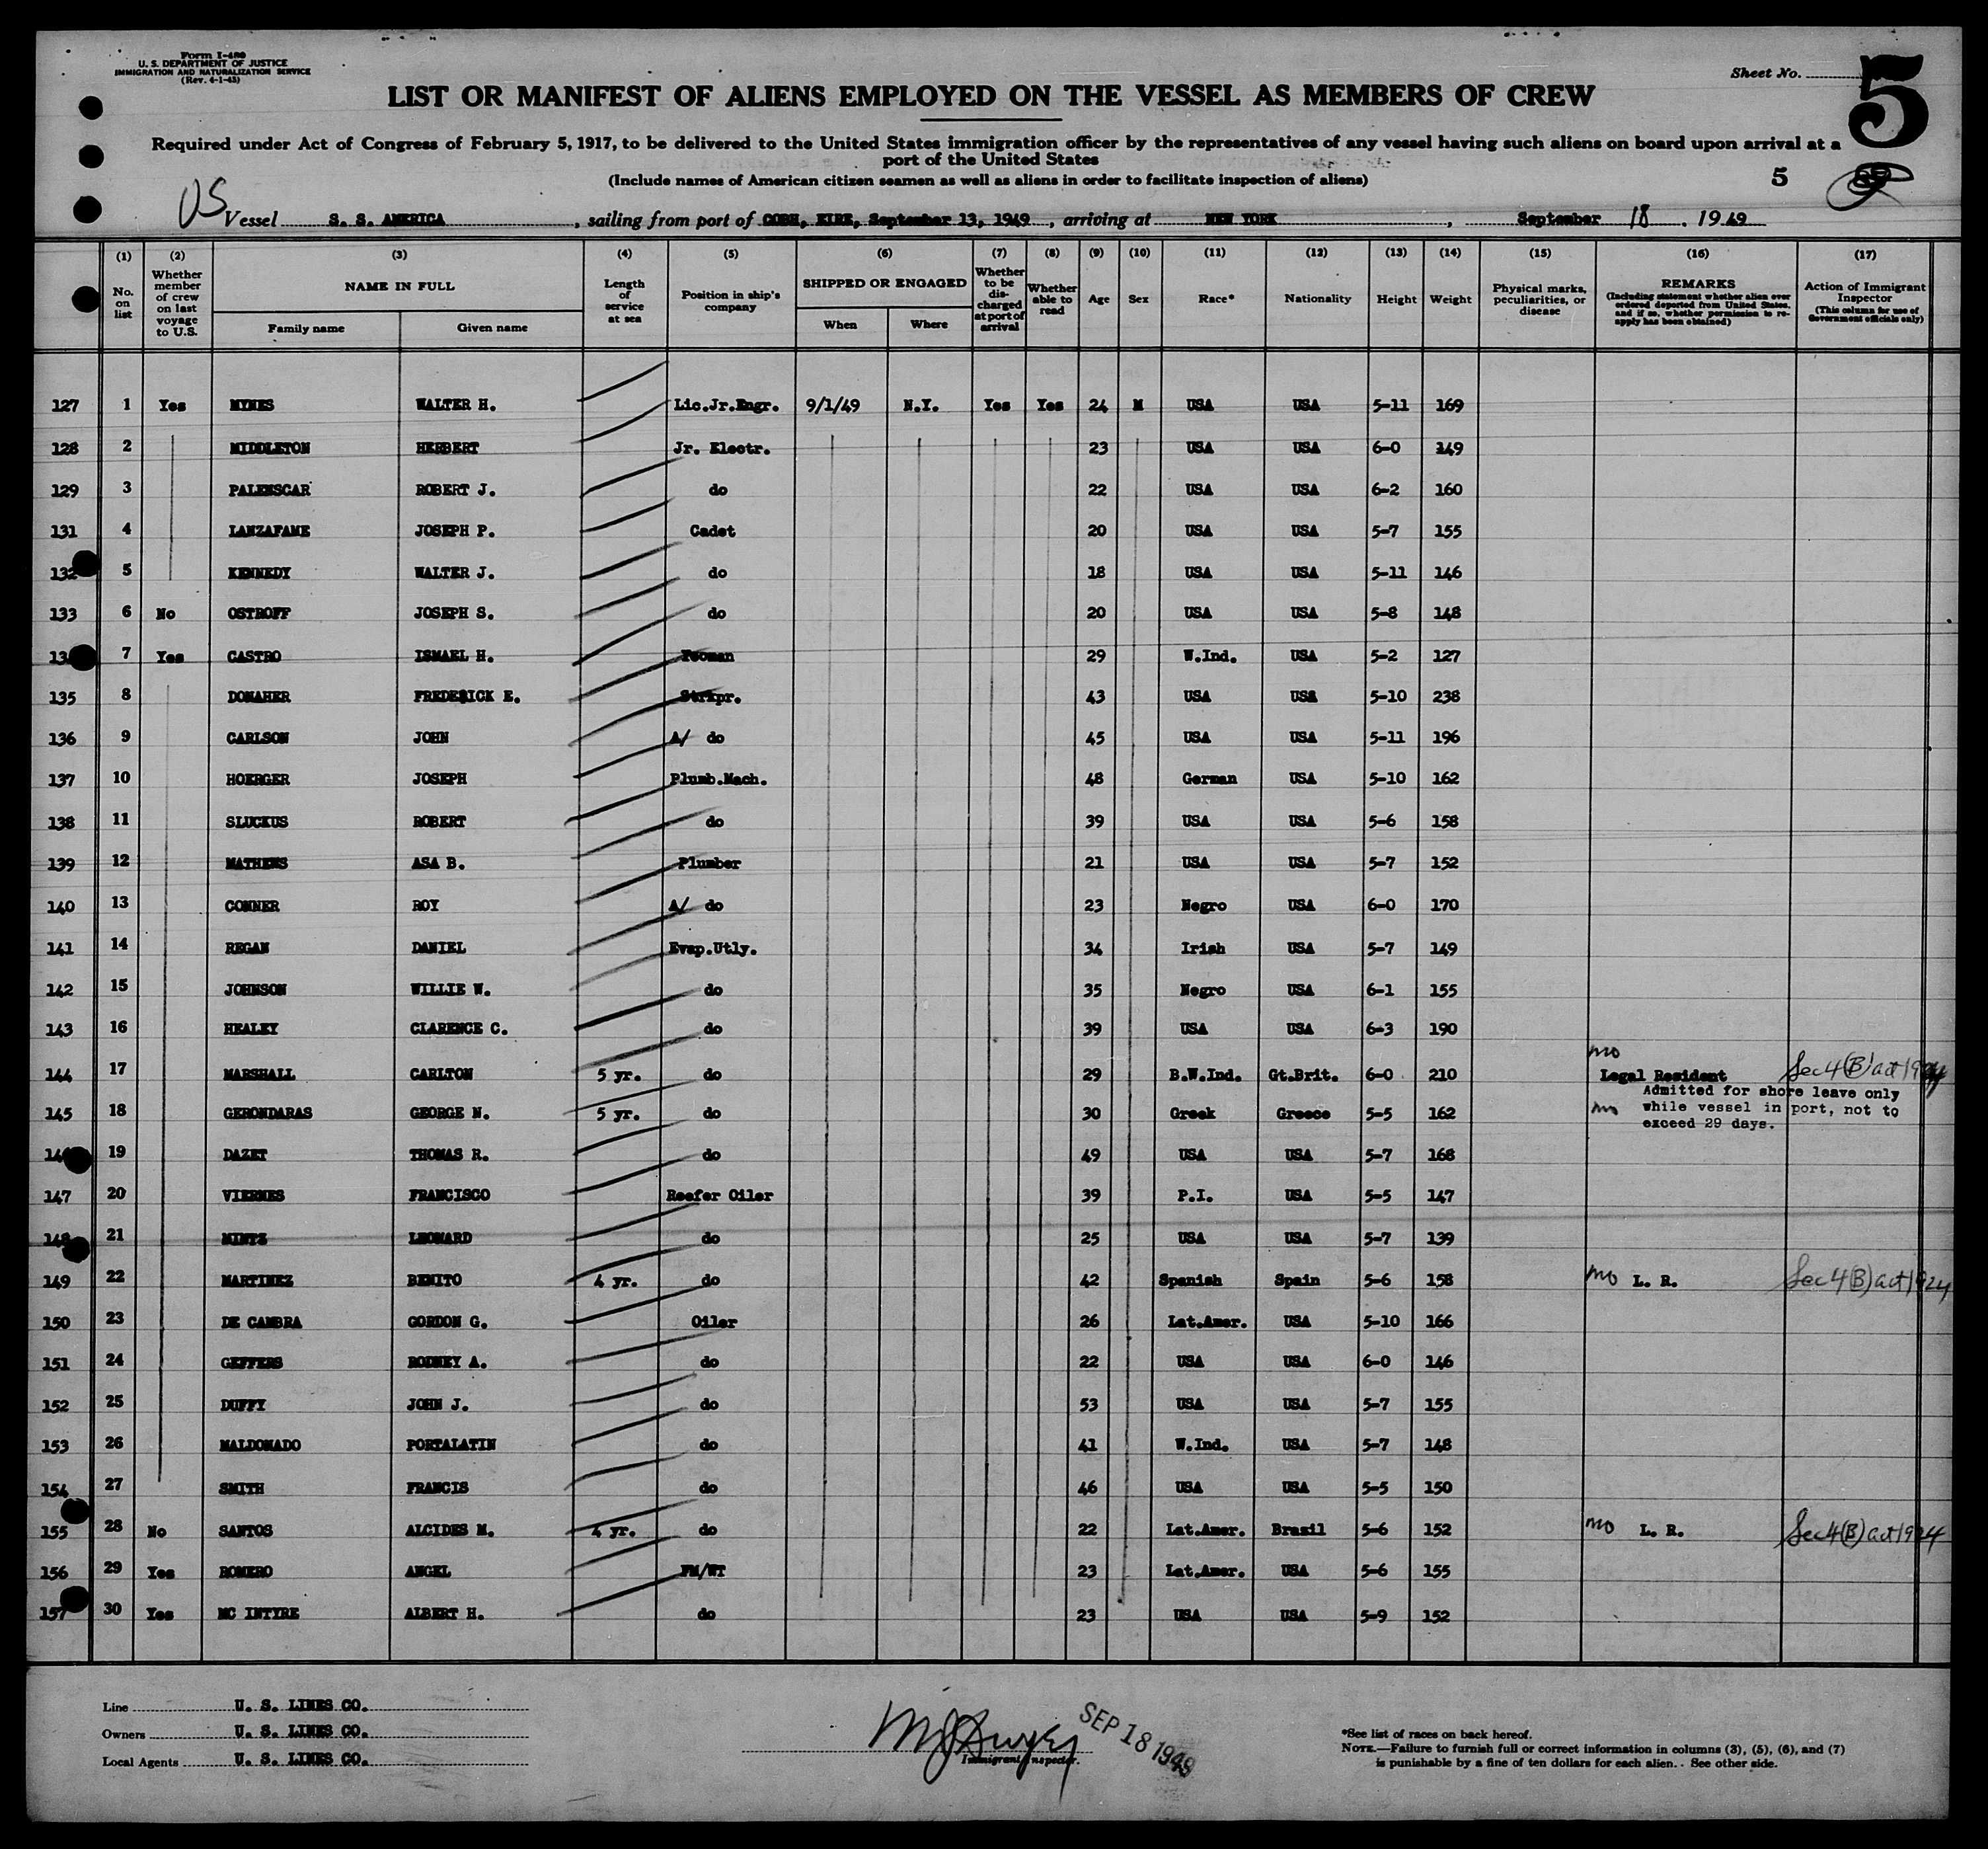 Form I-480
U. S. DEPARTMENT OF JUSTICE
IMMIGRATION AND NATURALIZATION SERVICE
(Rev. 4-1-43)
Sheet No. 5
LIST OR MANIFEST OF ALIENS EMPLOYED ON THE VESSEL AS MEMBERS OF CREW
Required under Act of Congress of February 5, 1917, to be delivered to the United States immigration officer by the representatives of any vessel having such aliens on board upon arrival at a
port of the United States
(Include names of American citizen seamen as well as aliens in order to facilitate inspection of aliens)
5
US
Vessel S. S. AMERICA, sailing from port of COBH, EIRE, September 13, 1949, arriving at NEW YORK, September 18, 1949
(1) No. on list
(2) Whether member of crew on last voyage to U.S.
(3) NAME IN FULL Family name Given name
(4) Length of service at sea
(5) Position in ship's company
(6) SHIPPED OR ENGAGED When Where
(7) Whether to be discharged at port of arrival
(8) Whether able to read
(9) Age
(10) Sex
(11) Race*
(12) Nationality
(13) Height
(14) Weight
(15) Physical marks, peculiarities, or disease
(16) REMARKS (Including statement whether alien ever ordered deported from United States, and if so, whether permission to reapply has been obtained)
(17) Action of Immigrant Inspector (This column for use of Government officials only)
127 1 Yes MYNES WALTER H. Lic.Jr.Engr. 9/1/49 N.Y. Yes Yes 24 M USA USA 5-11 169
128 2 MIDDLETON HERBERT Jr. Electr. 23 USA USA 6-0 149
129 3 PALENSCAR ROBERT J. do 22 USA USA 6-2 160
131 4 LANZAFAME JOSEPH P. Cadet 20 USA USA 5-7 155
132 5 KENNEDY WALTER J. do 18 USA USA 5-11 146
133 6 No OSTROFF JOSEPH S. do 20 USA USA 5-8 148
13 7 Yes CASTRO ISMAEL H. Yeoman 29 W.Ind. USA 5-2 127
135 8 DONAHER FREDERICK E. Strkpr. 43 USA USA 5-10 238
136 9 CARLSON JOHN A/ do 45 USA USA 5-11 196
137 10 HOERGER JOSEPH Plumb.Mach. 48 German USA 5-10 162
138 11 SLUCKUS ROBERT do 39 USA USA 5-6 158
139 12 MATHEWS ASA B. Plumber 21 USA USA 5-7 152
140 13 CONNER ROY A/ do 23 Negro USA 6-0 170
141 14 REGAN DANIEL Evap.Utly. 34 Irish USA 5-7 149
142 15 JOHNSON WILLIE W. do 35 Negro USA 6-1 155
143 16 HEALEY CLARENCE C. do 39 USA USA 6-3 190
144 17 MARSHALL CARLTON 5 yr. do 29 B.W.Ind. Gt.Brit. 6-0 210 Legal Resident Sec 4(B) act 1924
145 18 GERONDARAS GEORGE N. 5 yr. do 30 Greek Greece 5-5 162 Admitted for shore leave only
while vessel in port, not to
exceed 29 days.
14 19 DAZET THOMAS R. do 49 USA USA 5-7 168
147 20 VIERNES FRANCISCO Reefer Oiler 39 P.I. USA 5-5 147
148 21 MINTZ LEONARD do 25 USA USA 5-7 139
149 22 MARTINEZ BENITO 4 yr. do 42 Spanish Spain 5-6 158 L. R. Sec 4(B) act 1924
150 23 DE CAMBRA GORDON G. Oiler 26 Lat.Amer. USA 5-10 166
151 24 GEFFERS RODNEY A. do 22 USA USA 6-0 146
152 25 DUFFY JOHN J. do 53 USA USA 5-7 155
153 26 MALDONADO PORTALATIN do 41 W.Ind. USA 5-7 148
154 27 SMITH FRANCIS do 46 USA USA 5-5 150
155 28 No SANTOS ALCIDES M. 4 yr. do 22 Lat.Amer. Brazil 5-6 152 L. R. Sec 4(B) act 1924
156 29 Yes ROMERO ANGEL FM/WT 23 Lat.Amer. USA 5-6 155
157 30 Yes MC INTYRE ALBERT H. do 23 USA USA 5-9 152
Line U. S. LINES CO.
Owners U. S. LINES CO.
Local Agents U. S. LINES CO.
Immigrant Inspector.
SEP 18 1949
*See list of races on back hereof.
NOTE.—Failure to furnish full or correct information in columns (3), (5), (6), and (7)
is punishable by a fine of ten dollars for each alien. See other side.